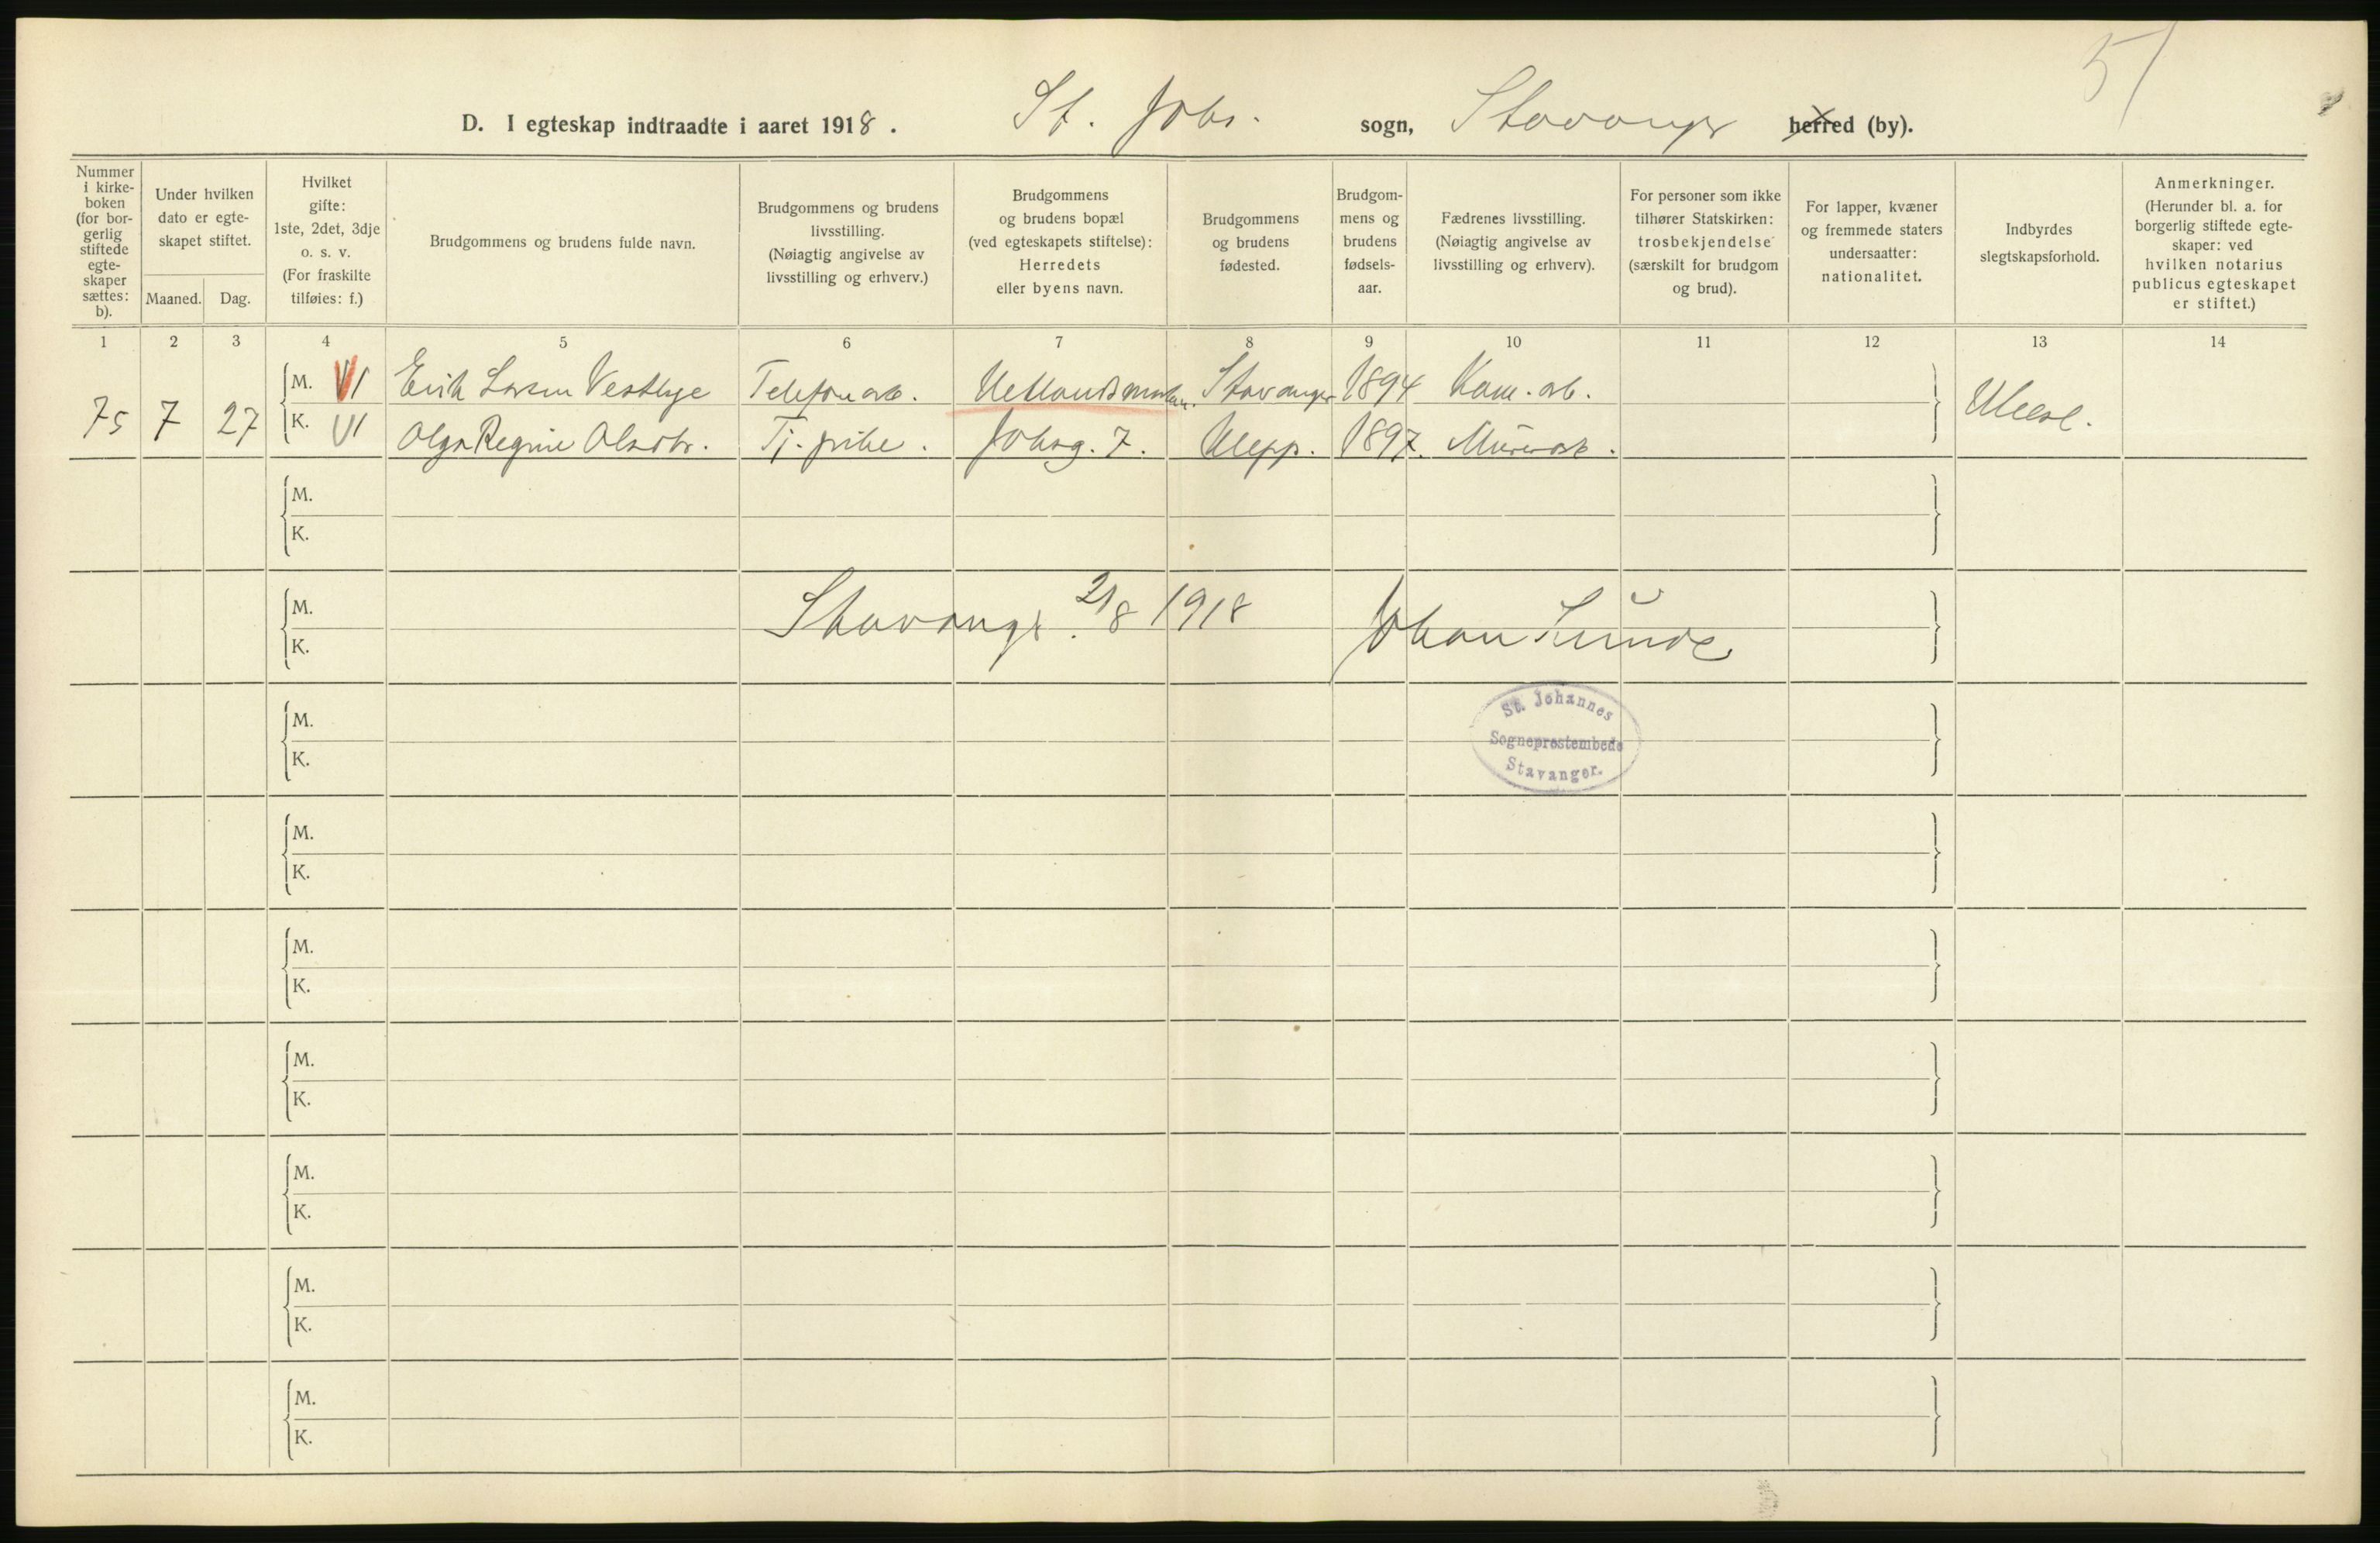 51
D. I egteskap indtraadte i aaret 1918. St. Johs. sogn, Stavanger herred (by).
Nummer i kirke-boken (for bor-gerlig stiftede egte-skaper sættes: b).
Under hvilken dato er egte-skapet stiftet.
Maaned. Dag.
Hvilket gifte: 1ste, 2det, 3dje o. s. v. (For fraskilte tilføies: f.)
Brudgommens og brudens fulde navn.
Brudgommens og brudens livsstilling. (Nøiagtig angivelse av livsstilling og erhverv.)
Brudgommens og brudens bopæl (ved egteskapets stiftelse): Herredets eller byens navn.
Brudgommens og brudens fødested.
Brudgom-mens og brudens fødsels-aar.
Fædrenes livsstilling. (Nøiagtig angivelse av livsstilling og erhverv).
For personer som ikke tilhører Statskirken: trosbekjendelse (særskilt for brudgom og brud).
For lapper, kvæner og fremmede staters undersaatter: nationalitet.
Indbyrdes slegtskapsforhold.
Anmerkninger. (Herunder bl. a. for borgerlig stiftede egte-skaper: ved hvilken notarius publicus egteskapet er stiftet.)
1 2 3 4 5 6 7 8 9 10 11 12 13 14
M. Erik Larsen Vestbye Telefonarb. Stavanger 1894 Kom. arb.
75 7 27 Ubesl.
K. Olga Regine Olsdtr. Tj. pike. Johsg. 7. Klepp. 1897. Murerarb.
M.
K.
M.
Stavanger 21/8 1918 Johan Lunde
K.
M.
St. Johannes
Sogneprestembede
Stavanger.
K.
M.
K.
M.
K.
M.
K.
M.
K.
M.
K.
M.
K.